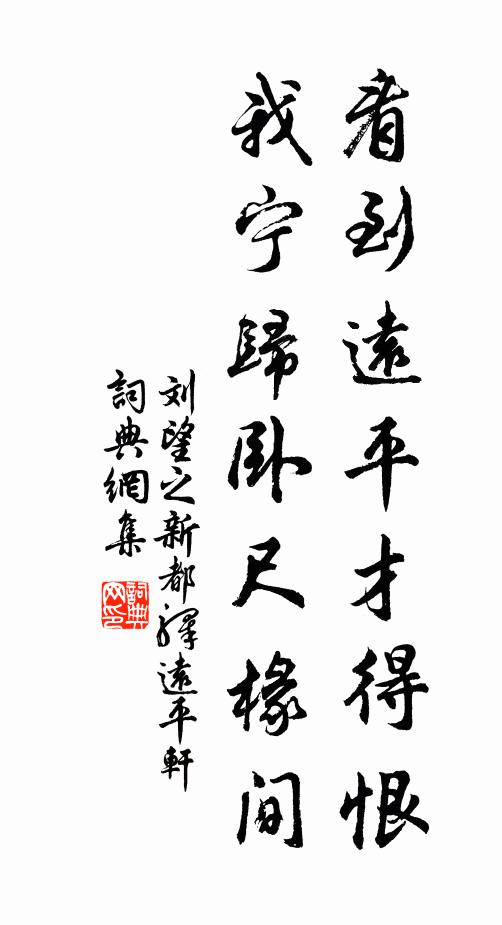 看到遠平才得恨
我宁歸卧尺椽间
刘望之新都驛遠平軒
詞典網集
詞典网印